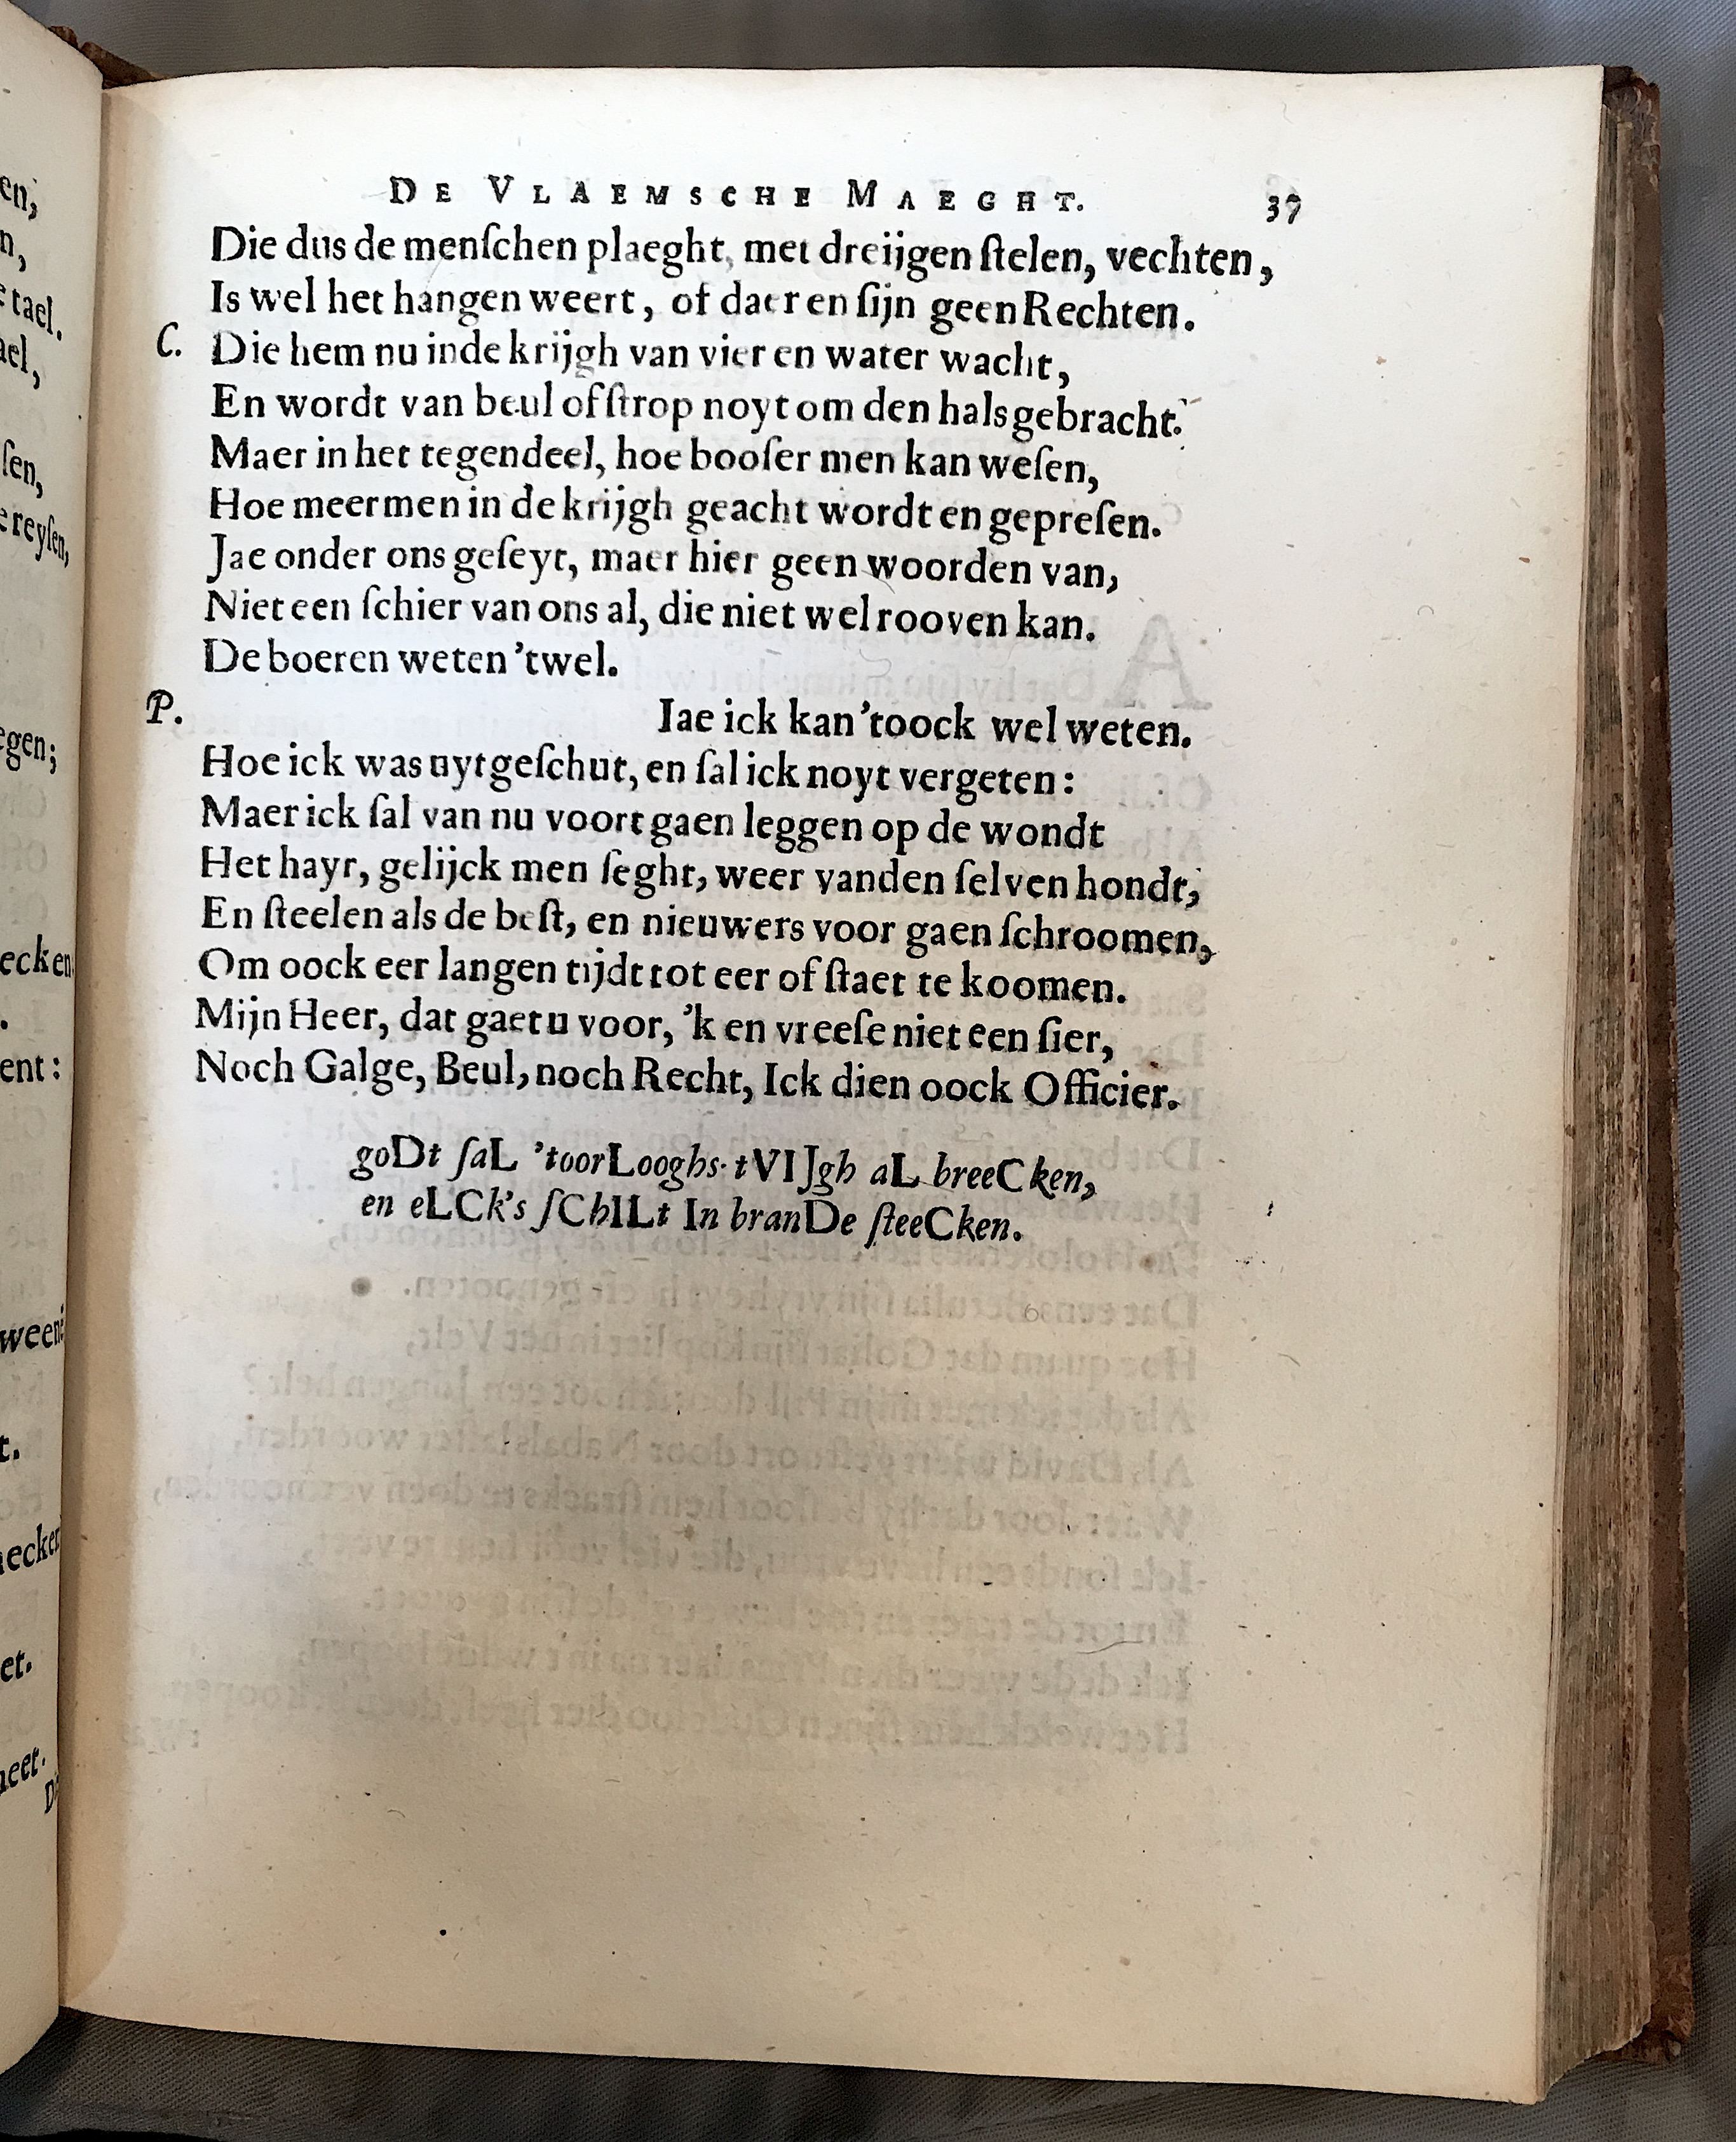 DE VLAEMSCHE MAEGHT. 37
Die dus de menſchen plaeght, met dreijgen ſtelen, vechten,
Is wel het hangen weert, of daer en ſijn geen Rechten.
C. Die hem nu inde krijgh van vier en water wacht,
En wordt van beul of ſtrop noyt om den hals gebracht.
Maer in het tegendeel, hoe booſer men kan weſen,
Hoe meer men in de krijgh geacht wordt en gepreſen.
Jae onder ons geſeyt, maer hier geen woorden van,
Niet een ſchier van ons al, die niet wel rooven kan.
De boeren weten 'twel.
P. Iae ick kan 'toock wel weten.
Hoe ick was uytgeſchut, en ſal ick noyt vergeten:
Maer ick ſal van nu voort gaen leggen op de wondt
Het hayr, gelijck men ſeght, weer vanden ſelven hondt,
En ſteelen als de beſt, en nieuwers voor gaen ſchroomen,
Om oock eer langen tijdt tot eer of ſtaet te koomen.
Mijn Heer, dat gaet u voor, 'k en vreeſe niet een ſier,
Noch Galge, Beul, noch Recht, Ick dien oock Officier.
goDt ſaL 'toorLooghs tVIJgh aL breeCken,
en eLCk's ſChILt In branDe ſteeCken.